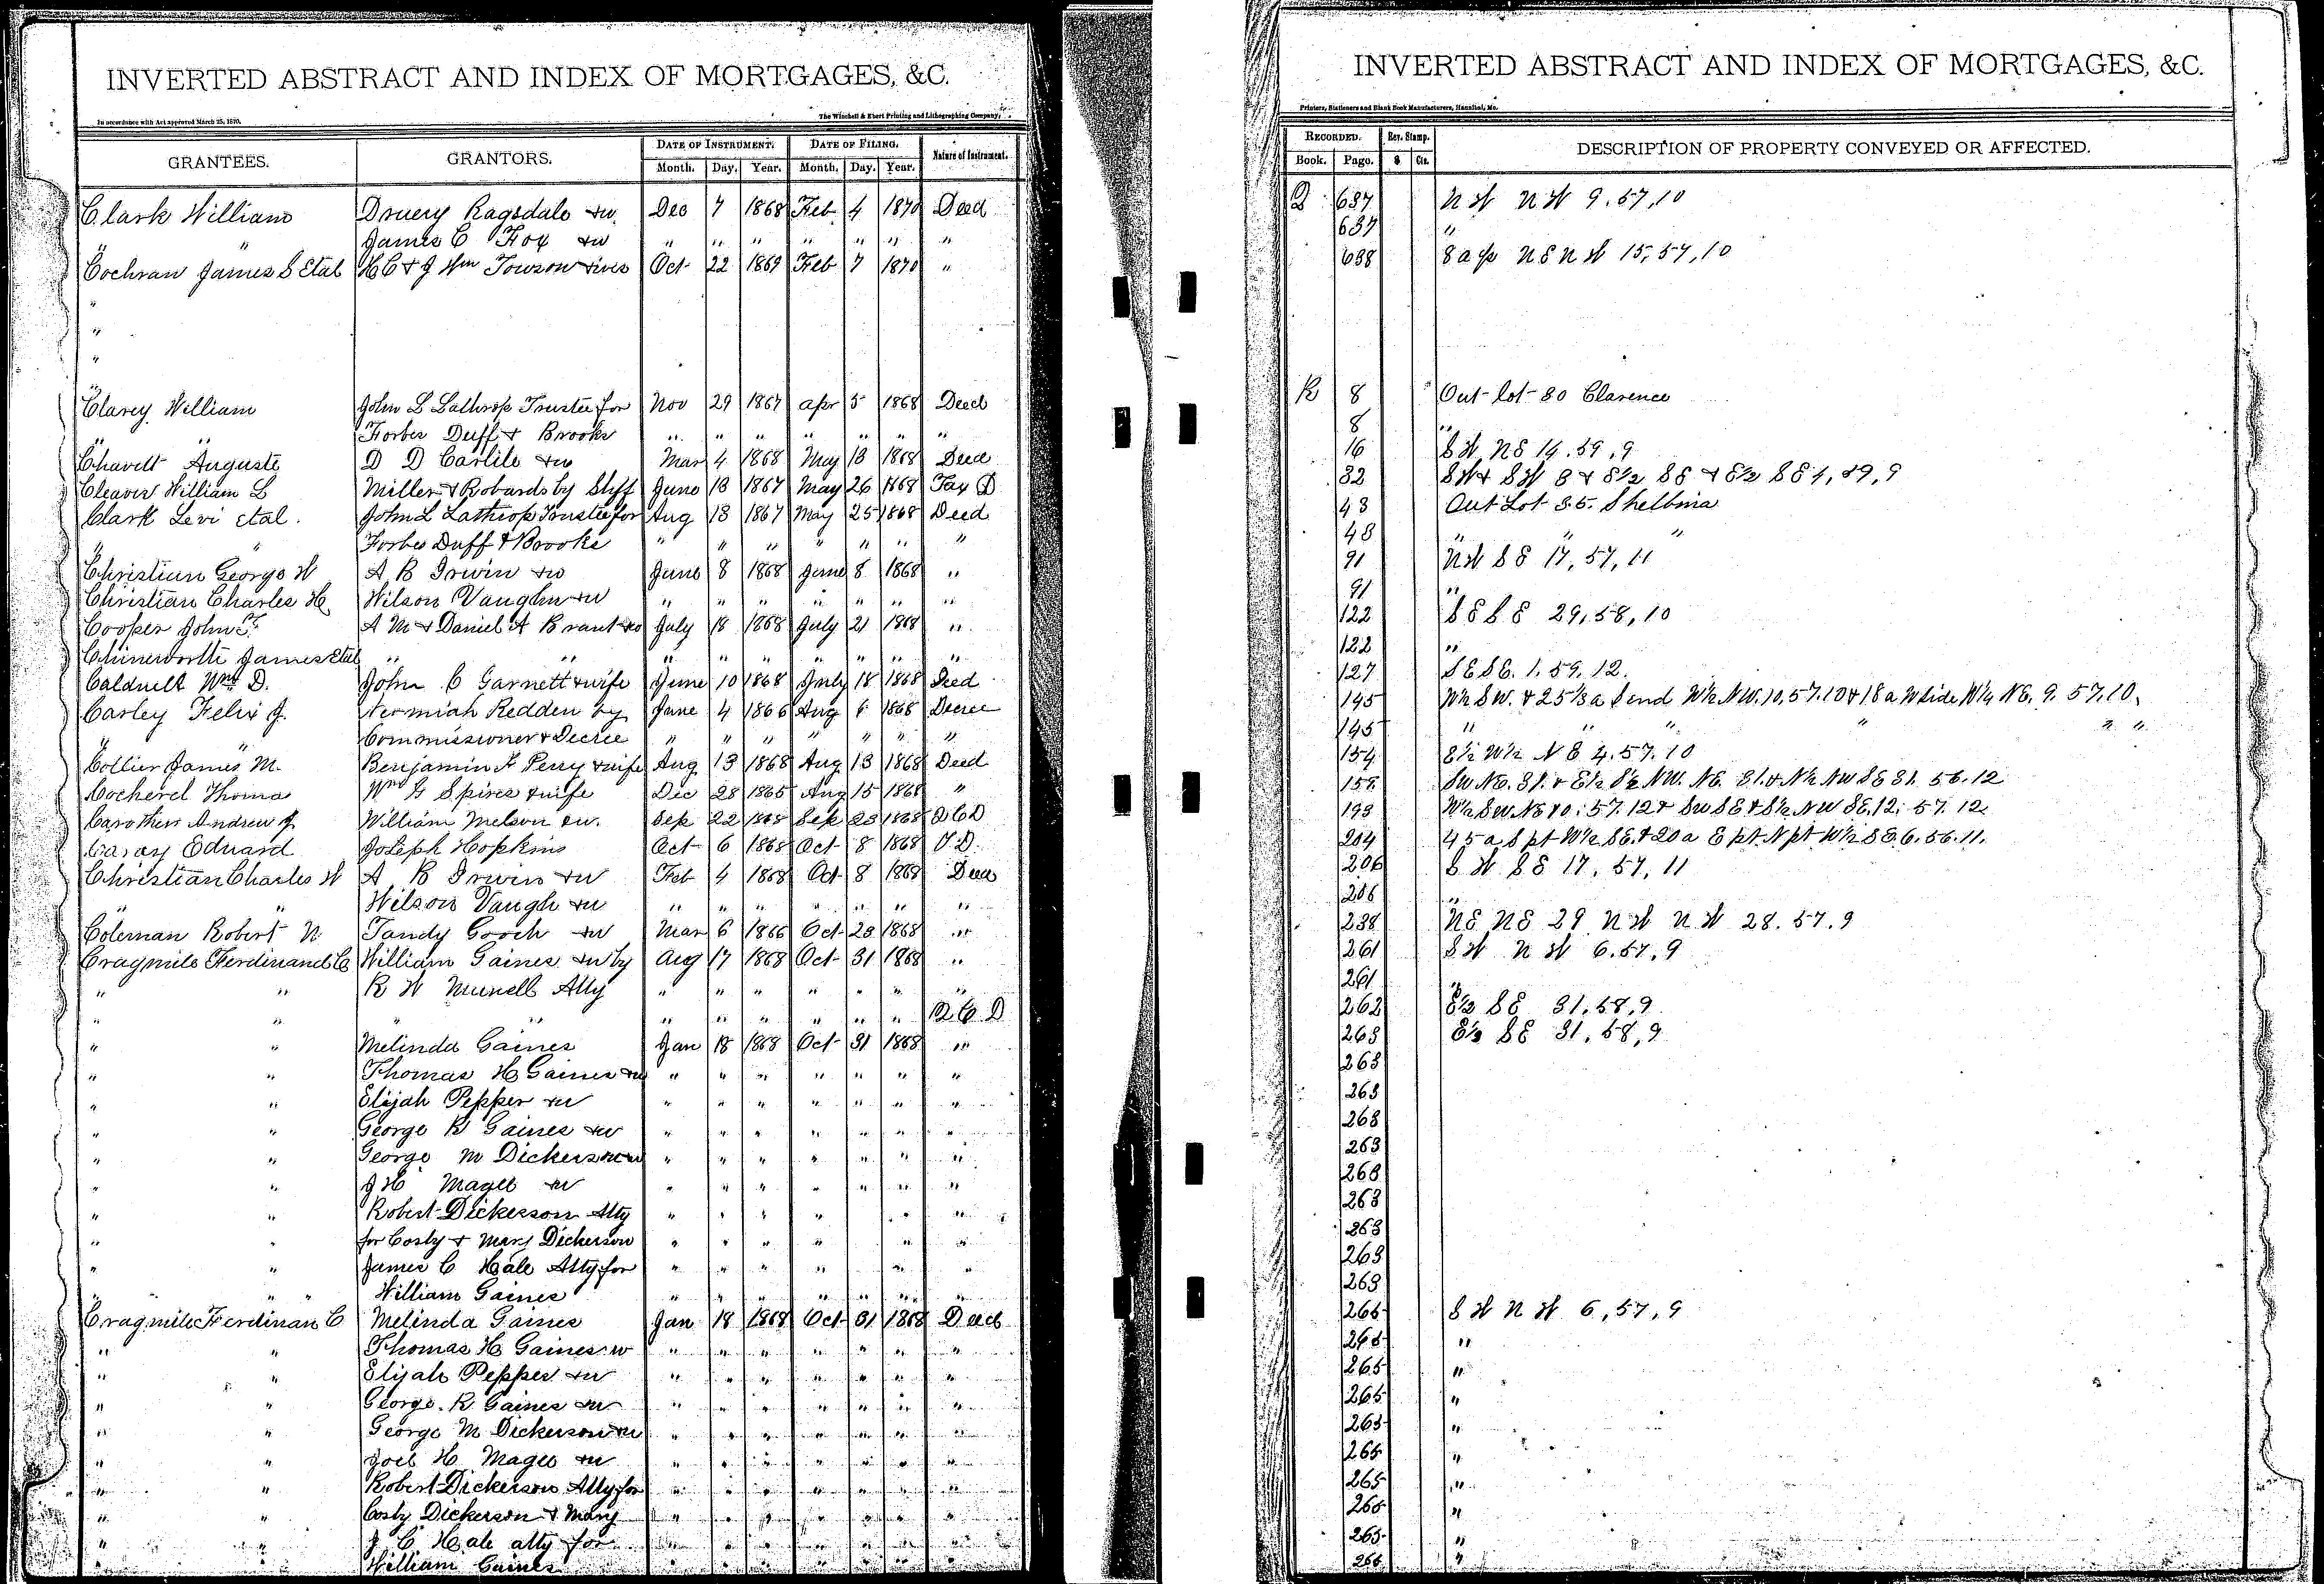 INVERTED ABSTRACT AND INDEX OF MORTGAGES, &C.
In accordance with Act approved March 25, 1870.
The Winchell & Ebert Printing and Lithographing Company,
GRANTEES. GRANTORS. DATE OF INSTRUMENT. DATE OF FILING. Nature of Instrument.
Month. Day. Year. Month. Day. Year.
Clark William Druery Ragsdale &w Dec 7 1868 Feb 4 1870 Deed
" James C Fox &w " " " " " " "
Cochran James S Etal H C & J Wm Towson & wives Oct 22 1869 Feb 7 1870 "
"
"
"
Clarey William John L Lathrop Trustee for Nov 29 1867 Apr 5 1868 Deed
" " Forbes Duff & Brooks " " " " " " "
Chavett Auguste D D Carlile &w Mar 4 1868 May 13 1868 Deed
Cleaver William L Miller & Robards by Shff June 13 1867 May 26 1868 Tax D
Clark Levi etal. John L Lathrop Trustee for Aug 13 1867 May 25 1868 Deed
" " Forbes Duff & Brooks " " " " " " "
Christian George W A B Irwin &w June 8 1868 June 8 1868 "
Christian Charles H Wilson Vaughn &w " " " " " " "
Cooper John T A M & Daniel A Brant &w July 18 1868 July 21 1868 "
Chineworth James Etal " " " " " " " " "
Caldwell Wm D. John C Garnett & wife June 10 1868 July 18 1868 Deed
Carley Felix J. Nermiah Redden by June 4 1866 Aug 6 1868 Decree
" " Commissioner & Decree " " " " " " "
Collier James M. Benjamin F Perry & wife Aug 13 1868 Aug 13 1868 Deed
Cockerel Thomas Wm G Spires & wife Dec 28 1865 Aug 15 1868 "
Carothers Andrew J William Melson &w. Sep 22 1868 Sep 23 1868 Q C D
Edward Joseph Hopkins Oct 6 1868 Oct 8 1868
Christian Charles H A B Irwin &w Feb 4 1868 Oct 8 1868 Deed
" " Wilson Vaugh &w " " " " " " "
Coleman Robert N Tandy Gooch &w Mar 6 1866 Oct 23 1868 "
Cragmile Ferdinand C William Gaines &w by Aug 17 1868 Oct 31 1868 "
" " R W Munell Atty " " " " " " "
" " " " " " " " " " Q C D
" " Melinda Gaines Jan 18 1868 Oct 31 1868 "
" " Thomas H Gaines &w " " " " " " "
" " Elijah Pepper &w " " " " " " "
" " George R Gaines &w " " " " " " "
" " George M Dickerson &w " " " " " " "
" " J H Magee &w " " " " " " "
" " Robert Dickerson Atty " " " " " " "
" " for Cosby & Mary Dickerson " " " " " " "
" " James C Hale Atty for " " " " " " "
" " William Gaines " " " " " " "
Cragmile Ferdinan C Melinda Gaines Jan 18 1868 Oct 31 1868 Deed
" " Thomas H Gaines w " " " " " " "
" " Elijah Pepper &w " " " " " " "
" " George R Gaines &w " " " " " " "
" " George M Dickerson &w " " " " " " "
" " Joel H Magee &w " " " " " " "
" " Robert Dickerson Atty for " " " " " " "
" " Cosby Dickerson & Mary " " " " " " "
" " J C Hale atty for " " " " " " "
" " William Gaines " " " " " " "
INVERTED ABSTRACT AND INDEX OF MORTGAGES, &C.
Printers, Stationers and Blank Book Manufacturers, Hannibal, Mo.
RECORDED. Rev. Stamp. DESCRIPTION OF PROPERTY CONVEYED OR AFFECTED.
Book. Page. $ Cts.
Q 687 N W N W 9, 57, 10
687 "
688 8 a N E N W 15, 57, 10
R 8 Out-lot-80 Clarence
8 "
16 S W N E 14. 59, 9
32 S W & S W 8 & E½ S E & E½ S E 1, 59, 9
43 Out Lot 35. Shelbina
43 " " "
91 N W S E 17, 57, 11
91 "
122 S E S E 29, 58, 10
122 "
127 S E S E. 1. 59. 12.
145 W½ S W. & 25⅓ a S end W½ N W. 10, 57. 10 & 18 a W side W½ N E. 9. 57. 10.
145 " " " " "
154 E½ W½ N E 4. 57. 10
158 S W N E. 31. & E½ S½ N W. N E. 31. & N½ N W S E 31. 56. 12
193 W½ S W. N E 10. 57. 12 & S W S E & S½ N W S E. 12. 57. 12
204 45 a S pt W½ S E. & 20 a E pt N pt W½ S E. 6. 56. 11.
206 S W S E 17, 57, 11
206 "
238 N E N E 29 N W N W 28. 57. 9
261 S W N W 6. 57, 9
261 "
262 E½ S E 31, 58, 9
263 E½ S E 31, 58, 9
263
263
263
263
263
263
263
263
263
265 S W N W 6, 57, 9
265 "
265 "
265 "
265 "
265 "
265 "
265 "
265 "
265 "